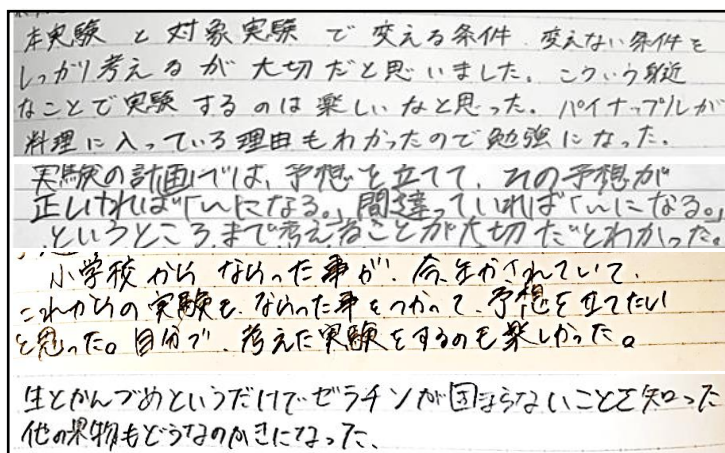 本実験と対象実験で変える条件、変えない条件を
しっかり考えるが大切だと思いました。こういう身近
なことで実験するのは楽しいなと思った。パイナップルが
料理に入っている理由もわかったので勉強になった。
実験の計画では、予想を立てて、その予想が
正しければ「〜になる。」間違っていれば「〜になる。」
というところまで考えることが大切だとわかった。
小学校からならった事が、今生かされていて、
これからの実験も、ならった事をつかって、予想を立てたい
と思った。自分で、考えた実験をするのも楽しかった。
生とかんづめというだけでゼラチンが固まらないことを知った
他の果物もどうなのかきになった、